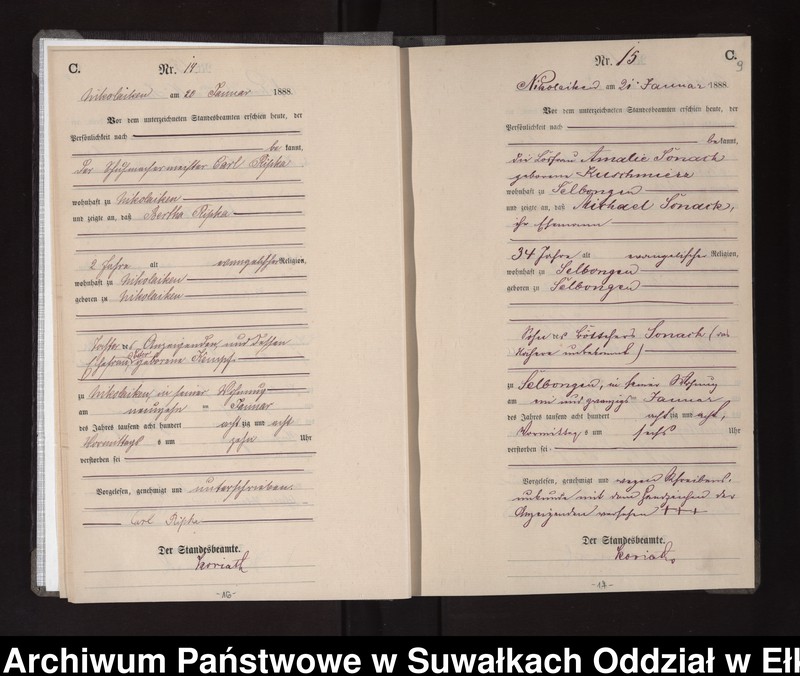 C.
Nr. 14
Nikolaiken am 20 Januar 1888.
Vor dem unterzeichneten Standesbeamten erschien heute, der
Persönlichkeit nach
be kannt,
Der Schuhmachermeister Carl Ripka
wohnhaft zu Nikolaiken
und zeigte an, daß Bertha Ripka
2 Jahre alt evangelischer Religion,
wohnhaft zu Nikolaiken
geboren zu Nikolaiken
Tochter des Anzeigenden und dessen
Ehefrau geborene Kempf
zu Nikolaiken, in seiner Wohnung
am neunzehn Januar
des Jahres tausend acht hundert acht zig und acht
Vormittags um zehn Uhr
verstorben sei
Vorgelesen, genehmigt und unterschrieben.
Carl Ripka
Der Standesbeamte.
Koriath
-16-
C.
9
Nr. 15
Nikolaiken am 21. Januar 1888.
Vor dem unterzeichneten Standesbeamten erschien heute, der
Persönlichkeit nach
bekannt,
die Losfrau Amalie Sonack
geborene Kuschmierz
wohnhaft zu Selbongen
und zeigte an, daß Michael Sonack,
ihr Ehemann
34 Jahre alt evangelischer Religion,
wohnhaft zu Selbongen
geboren zu Selbongen
Sohn des Böttchers Sonack (das
Nähere unbekannt)
zu Selbongen, in seiner Wohnung
am ein und zwanzigs Januar
des Jahres tausend acht hundert acht zig und acht,
Vormittags um sechs Uhr
verstorben sei
Vorgelesen, genehmigt und wegen Schreibens-
unkunde mit dem Handzeichen der
Anzeigenden versehen +++
Der Standesbeamte.
Koriath
-17-
Archiwum Państwowe w Suwałkach Oddział w Ełk